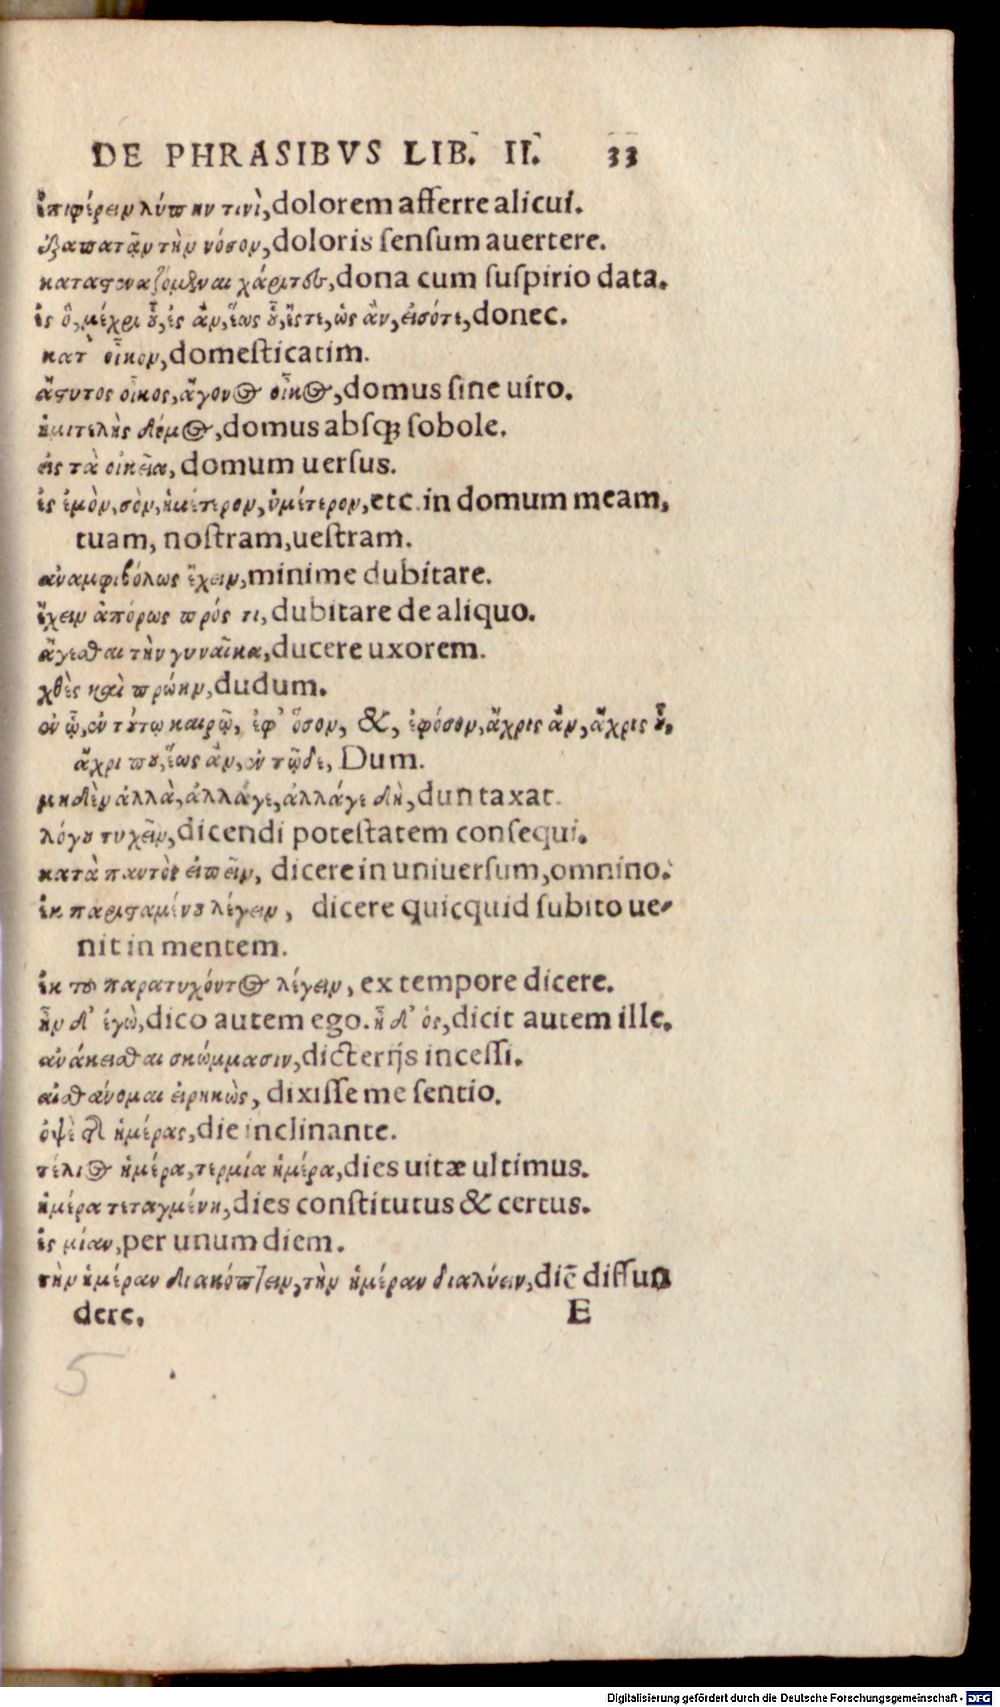 DE PHRASIBVS LIB. II. 33
ἐπιφέρειν λύπην τινὶ, dolorem afferre alicui.
ἐξαπατᾷν τὴν νόσον, doloris sensum auertere.
καταστεναζομέναι χάριτες, dona cum suspirio data.
ἐς ὃ, μέχρι οὗ, ἐς ἂν, ἕως οὗ, ἔςτε, ὡς ἂν, εἰσότε, donec.
κατ' οἶκον, domesticatim.
ἄστυτος οἶκος, ἄγονος οἶκος, domus sine uiro.
ἡμιτελὴς δόμος, domus absq; sobole.
εἰς τὰ οἰκεῖα, domum uersus.
ἐς ἐμὸν, σὸν, ἡμέτερον, ὑμέτερον, etc. in domum meam,
tuam, nostram, uestram.
ἀναμφιβόλως ἔχειν, minime dubitare.
ἔχειν ἀπόρως πρός τι, dubitare de aliquo.
ἄγεσθαι τὴν γυναῖκα, ducere uxorem.
χθὲς καὶ πρώην, dudum.
ἐν ᾧ, ἐν τούτῳ καιρῷ, ἐφ' ὅσον, &, ἐφόσον, ἄχρις ἂν, ἄχρις οὗ,
ἄχρι που, ἕως ἂν, ἐν τῷδε, Dum.
μηδὲν ἀλλὰ, ἀλλάγε, ἀλλάγε δὴ, duntaxat.
λόγου τυχεῖν, dicendi potestatem consequi.
κατὰ παντὸς εἰπεῖν, dicere in uniuersum, omnino.
ἐκ παρισταμένου λέγειν, dicere quicquid subito ue-
nit in mentem.
ἐκ τοῦ παρατυχόντος λέγειν, ex tempore dicere.
ἦν δ' ἐγὼ, dico autem ego. ἦ δ' ὃς, dicit autem ille.
ἀνάκεισθαι σκώμμασιν, dicterijs incessi.
αἰσθάνομαι εἰρηκὼς, dixisse me sentio.
ὀψὲ τῆς ἡμέρας, die inclinante.
τέλεος ἡμέρα, τερμία ἡμέρα, dies uitæ ultimus.
ἡμέρα τεταγμένη, dies constitutus & certus.
ἐς μίαν, per unum diem.
τὴν ἡμέραν διακόπτειν, τὴν ἡμέραν διαλύειν, diē diffun
dere. E
5
Digitalisierung gefördert durch die Deutsche Forschungsgemeinschaft - DFG